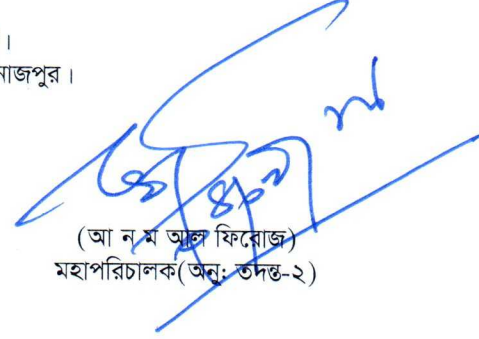 ।
নাজপুর।
(আ ন ম আল ফিরোজ)
মহাপরিচালক(অনু: তদন্ত-২)